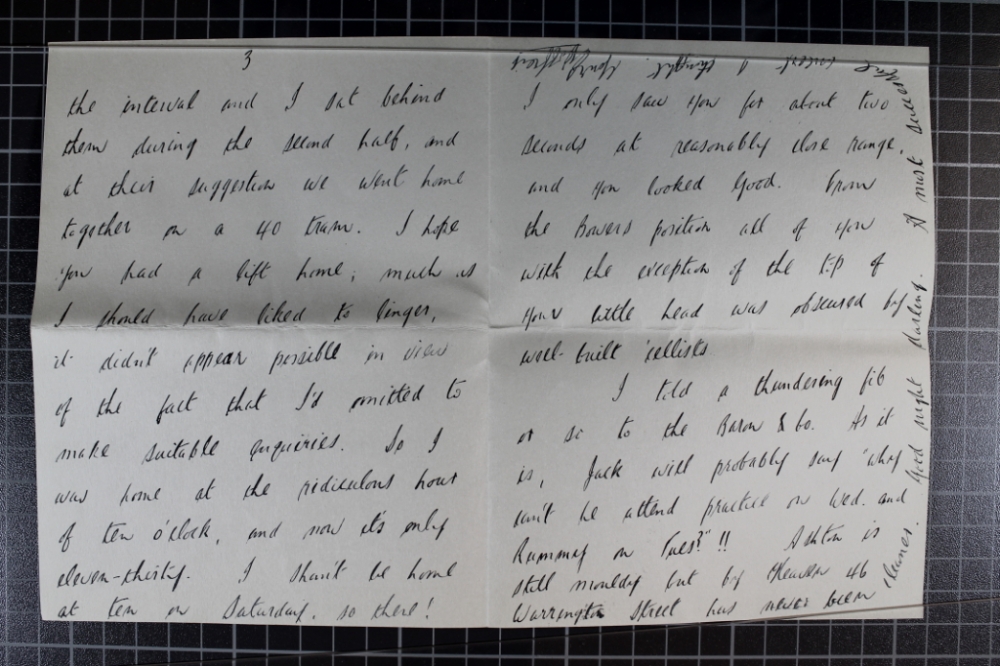 3
the interval and I sat behind
them during the second half, and
at their suggestion we went home
together on a 40 tram. I hope
you had a lift home; much as
I should have liked to linger,
it didn't appear possible in view
of the fact that I'd omitted to
make suitable enquiries. So I
was home at the ridiculous hour
of ten o'clock, and now it's only
eleven-thirty. I shan't be home
at ten on Saturday, so there!
I only saw you for about two
seconds at reasonably close range,
and you looked good. From
the Bowers position all of you
with the exception of the tip of
your little head was obscured by
well-built 'cellists.
I told a thundering fib
or so to the Baron & Co. As it
is, Jack will probably say 'why
can't he attend practice on Wed. and
Rummy on Tues?' !! Ashton is
still mouldy but by Heaven 46
Warrington Street has never been
cleaner. Good night darling. A most successful
concert I thought. Yours